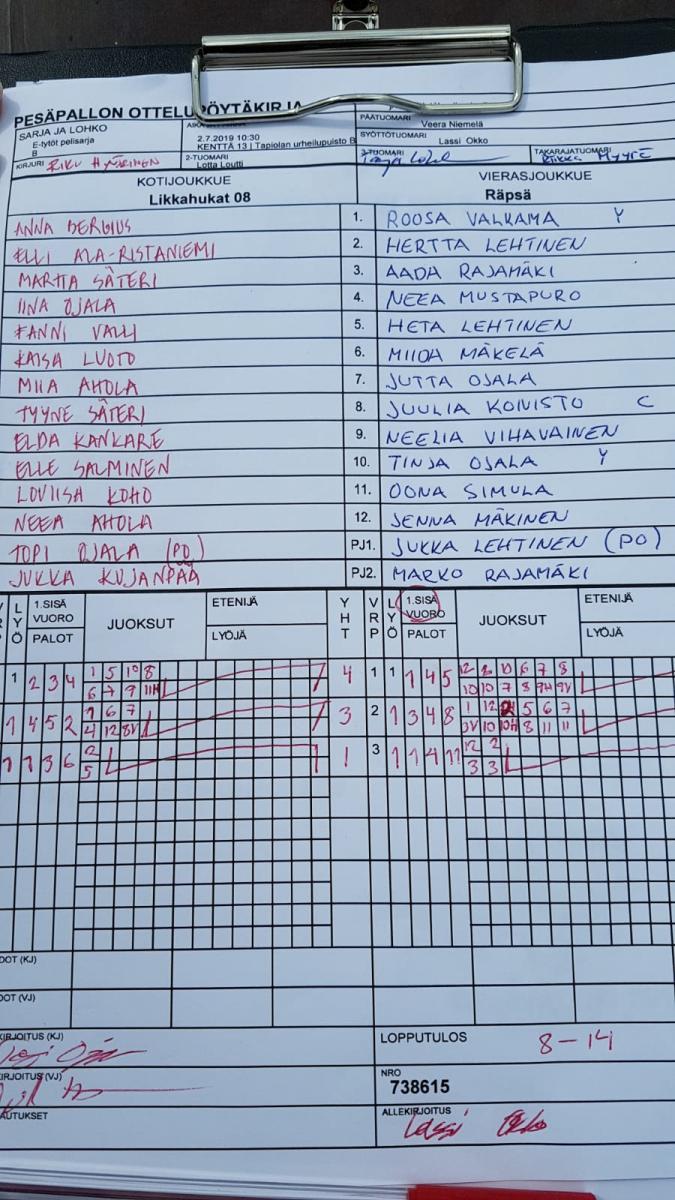 PESÄPALLON OTTELUPÖYTÄKIRJA
SARJA JA LOHKO
E-tytöt pelisarja
B
2.7.2019 10:30
KENTTÄ 13 | Tapiolan urheilupuisto B
PÄÄTUOMARI
Veera Niemelä
SYÖTTÖTUOMARI
Lassi Okko
KIRJURI RIKU HYÄRINEN
2-TUOMARI
Lotta Loutti
3-TUOMARI
TAKARAJATUOMARI
KOTIJOUKKUE
Likkahukat 08
VIERASJOUKKUE
Räpsä
ANNA BERGIUS 1. ROOSA VALKAMA Y
ELLI ALA-RISTANIEMI 2. HERTTA LEHTINEN
MARTTA SÄTERI 3. AADA RAJAMÄKI
IINA OJALA 4. NEEA MUSTAPURO
FANNI VALLI 5. HETA LEHTINEN
KAISA LUOTO 6. MIIDA MÄKELÄ
MIIA AHOLA 7. JUTTA OJALA
TYYNE SÄTERI 8. JUULIA KONISTO C
ELDA KANKARE 9. NEELIA VIHAVAINEN
ELLE SALMINEN 10. TINJA OJALA Y
LOVIISA KOHO 11. OONA SIMULA
NEEA AHOLA 12. JENNA MÄKINEN
TOPI OJALA (PO) PJ1. JUKKA LEHTINEN (PO)
JUKKA KUJANPÄÄ PJ2. MARKO RAJAMÄKI
LYÖ 1.SISÄ VUORO PALOT JUOKSUT ETENIJÄ LYÖJÄ YHT VRP LYÖ 1.SISÄ VUORO PALOT JUOKSUT ETENIJÄ LYÖJÄ
1 2 3 4 1 5 10 8 4 1 1 1 4 5 12 8 10 6 7 8
6 7 9 11H 10 10 7 8 9H 9V
1 4 5 2 1 6 7 3 2 1 3 4 8 1 12 2 5 6 7
4 12 8V 3V 10 10H 8 11 11
1 1 3 6 2 1 3 1 1 4 11 12 2
5 3 3
LOPPUTULOS 8-14
NRO
738615
ALLEKIRJOITUS
Lassi Okko